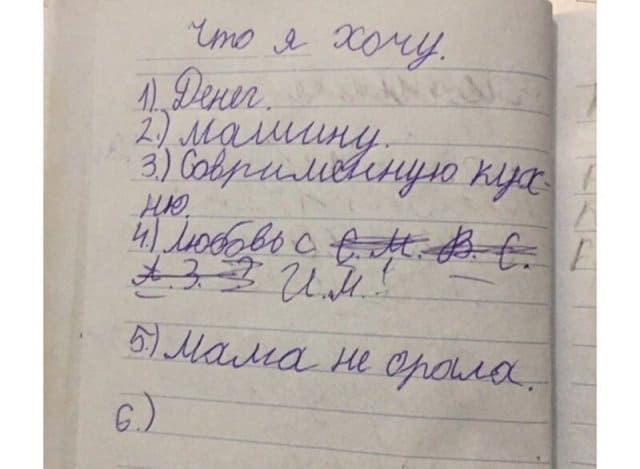 Что я хочу.
1). Денег.
2.) машину.
3.) Совримемнную кух-
ню.
4.) Любовь с С. М. В. С.
А. З. И.М.!
5.) Мама не орала.
6.)